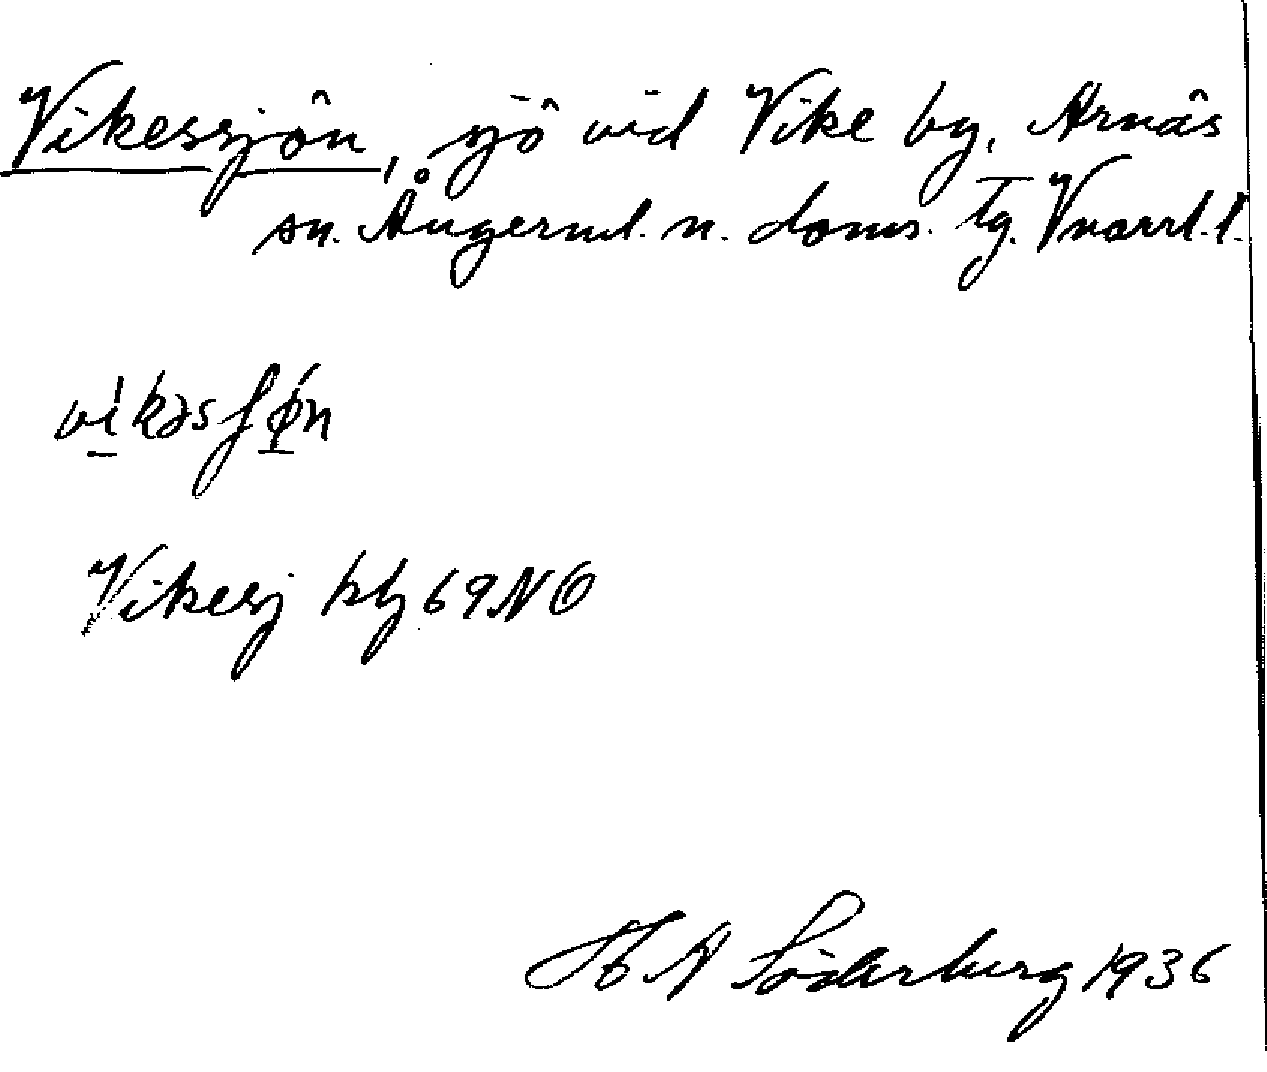 Vikessjön, sjö vid Vike by, Arnäs
sn. Ångerml. n. doms. tg. Vnorrl. l.
víkəsʃǿn
Vikesj ktbl 69 NO
K A Söderberg 1936